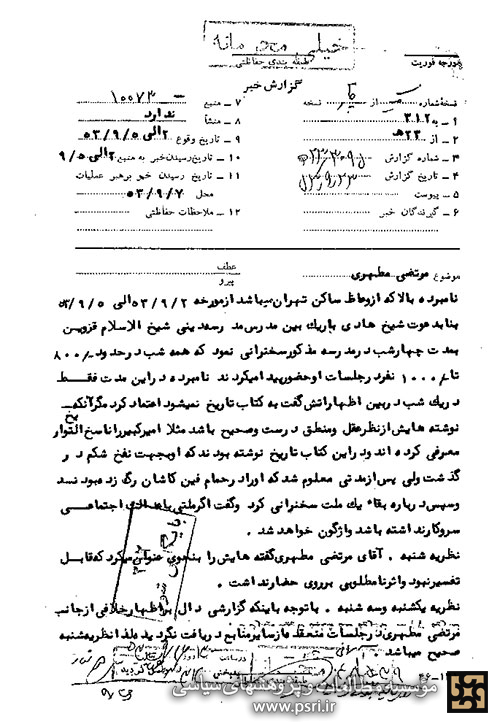 خیلی محرمانه
طبقه بندی حفاظتی
درجه فوریت
گزارش خبر
نسخه شماره از نسخه
۱ – به ۳۱۲
۲ – از ۲۳ه
۳ – شماره گزارش
۴ – تاریخ گزارش
۵ – پیوست
۶ – گیرندگان خبر
۷ – منبع ۱۰۰۷۳
۸ – منشأ ندارد
۹ – تاریخ وقوع ۲ الی ۵۳/۹/۵
۱۰ – تاریخ رسیدن خبر به منبع ۲ الی ۹/۵
۱۱ – تاریخ رسیدن خبر برهبر عملیات
محل ۵۳/۹/۷
۱۲ – ملاحظات حفاظتی
موضوع مرتضی مطهری
عطف
پیرو
نامبرده بالا که از وعاظ ساکن تهران میباشد از مورخه ۵۳/۹/۲ الی ۵۳/۹/۵
بنا بدعوت شیخ هادی باریک بین مدرس مدرسه دینی شیخ الاسلام قزوین
بمدت چهار شب در مدرسه مذکور سخنرانی نمود که همه شب در حدود ۸۰۰
تا ۱۰۰۰ نفر در جلسات او حضور پیدا میکردند نامبرده در این مدت فقط
در یک شب در بین اظهاراتش گفت به کتاب تاریخ نمیشود اعتماد کرد مگر آنکه
نوشته هایش از نظر عقل و منطق درست و صحیح باشد مثلا امیرکبیر را ناسخ التواریخ
معرفی کرده اند و در این کتاب تاریخ نوشته بودند که او بجهت نفخ شکم در
گذشت ولی پس از مدتی معلوم شد که او را در حمام فین کاشان رگ زده بودند
وسپس درباره بقاء یک ملت سخنرانی کرد وگفت اگر ملتی با عدالتی اجتماعی
سروکار نداشته باشد واژگون خواهد شد .
نظریه شنبه . آقای مرتضی مطهری گفته هایش را بنحوی عنوان میکرد که قابل
تفسیر نبود و اثر نامطلوبی بر روی حضار نداشت .
نظریه یکشنبه وسه شنبه . با توجه باینکه گزارشی دال بر اظهار خلافی از جانب
مرتضی مطهری در جلسات منعقده از سایر منابع دریافت نگردیده لذا نظریه شنبه
صحیح میباشد .
مؤسسه مطالعات و پژوهشهای سیاسی
www.psri.ir